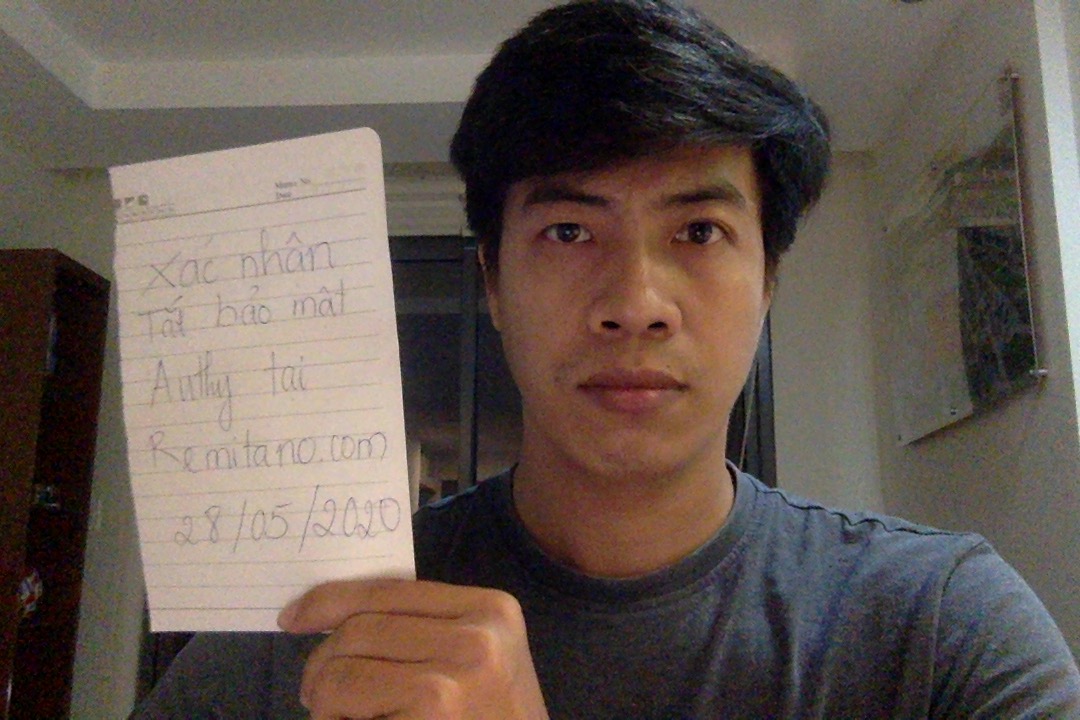 Memo No.
Date
Xác nhận
Tắt bảo mật
Authy tại
Remitano.com
28/05/2020